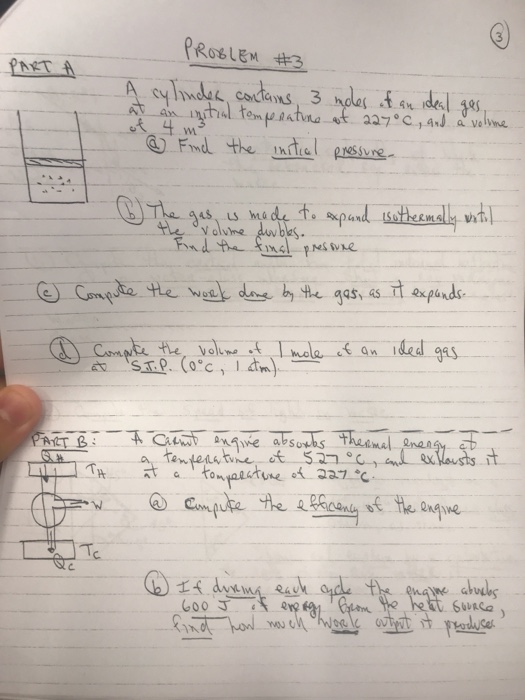 3
PROBLEM #3
PART A
A cylinder contains 3 moles of an ideal gas,
at an initial temperature of 227°C, and a volume
of 4 m³
ⓐ Find the initial pressure.
ⓑ The gas is made to expand isothermally until
the volume doubles.
Find the final pressure
ⓒ Compute the work done by the gas, as it expands.
ⓓ Compute the volume of 1 mole of an ideal gas
at S.T.P. (0°C, 1 atm).
PART B: A Carnot engine absorbs thermal energy at
a temperature of 527°C, and exhausts it
at a temperature of 227°C.
QH
TH
W
TC
QC
ⓐ Compute the efficiency of the engine
ⓑ If during each cycle the engine absorbs
600 J of energy from the heat source,
find how much work output it produces